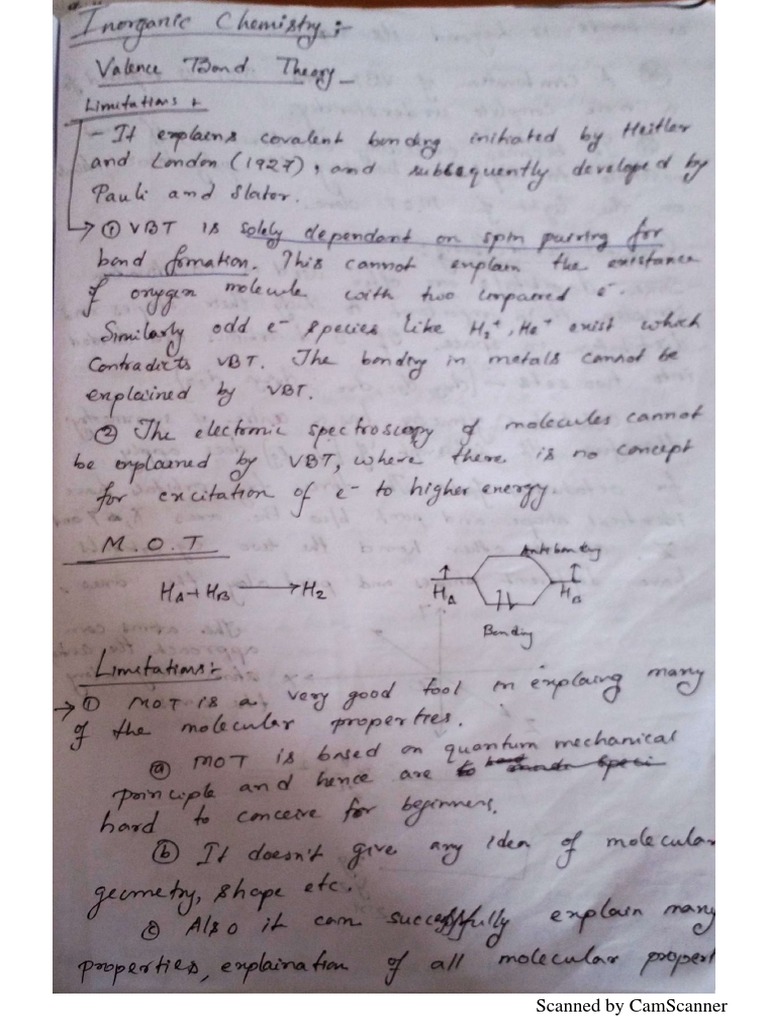 Inorganic Chemistry :-
Valence Bond Theory -
Limitations :-
- It explains covalent bonding initiated by Heitler
and London (1927), and subsequently developed by
Pauli and Slater.
→ ① VBT is solely dependant on spin pairing for
bond formation. This cannot explain the existance
of oxygen molecule with two unpaired e⁻.
Similarly odd e⁻ species like H₂⁺, He⁺ exist which
Contradicts VBT. The bonding in metals cannot be
explained by VBT.
② The electronic spectroscopy of molecules cannot
be explained by VBT, where there is no concept
for excitation of e⁻ to higher energy
M.O.T
Antibonding
H_A + H_B → H₂
H_A H_B
Bonding
Limitations :-
→ ① MOT is a very good tool in explaing many
of the molecular properties.
ⓐ MOT is based on quantum mechanical
principle and hence are to
hard to conceive for beginners.
ⓑ It doesn't give any idea of molecular
geometry, shape etc.
ⓒ Also it can successfully explain many
properties, explaination of all molecular propert
Scanned by CamScanner